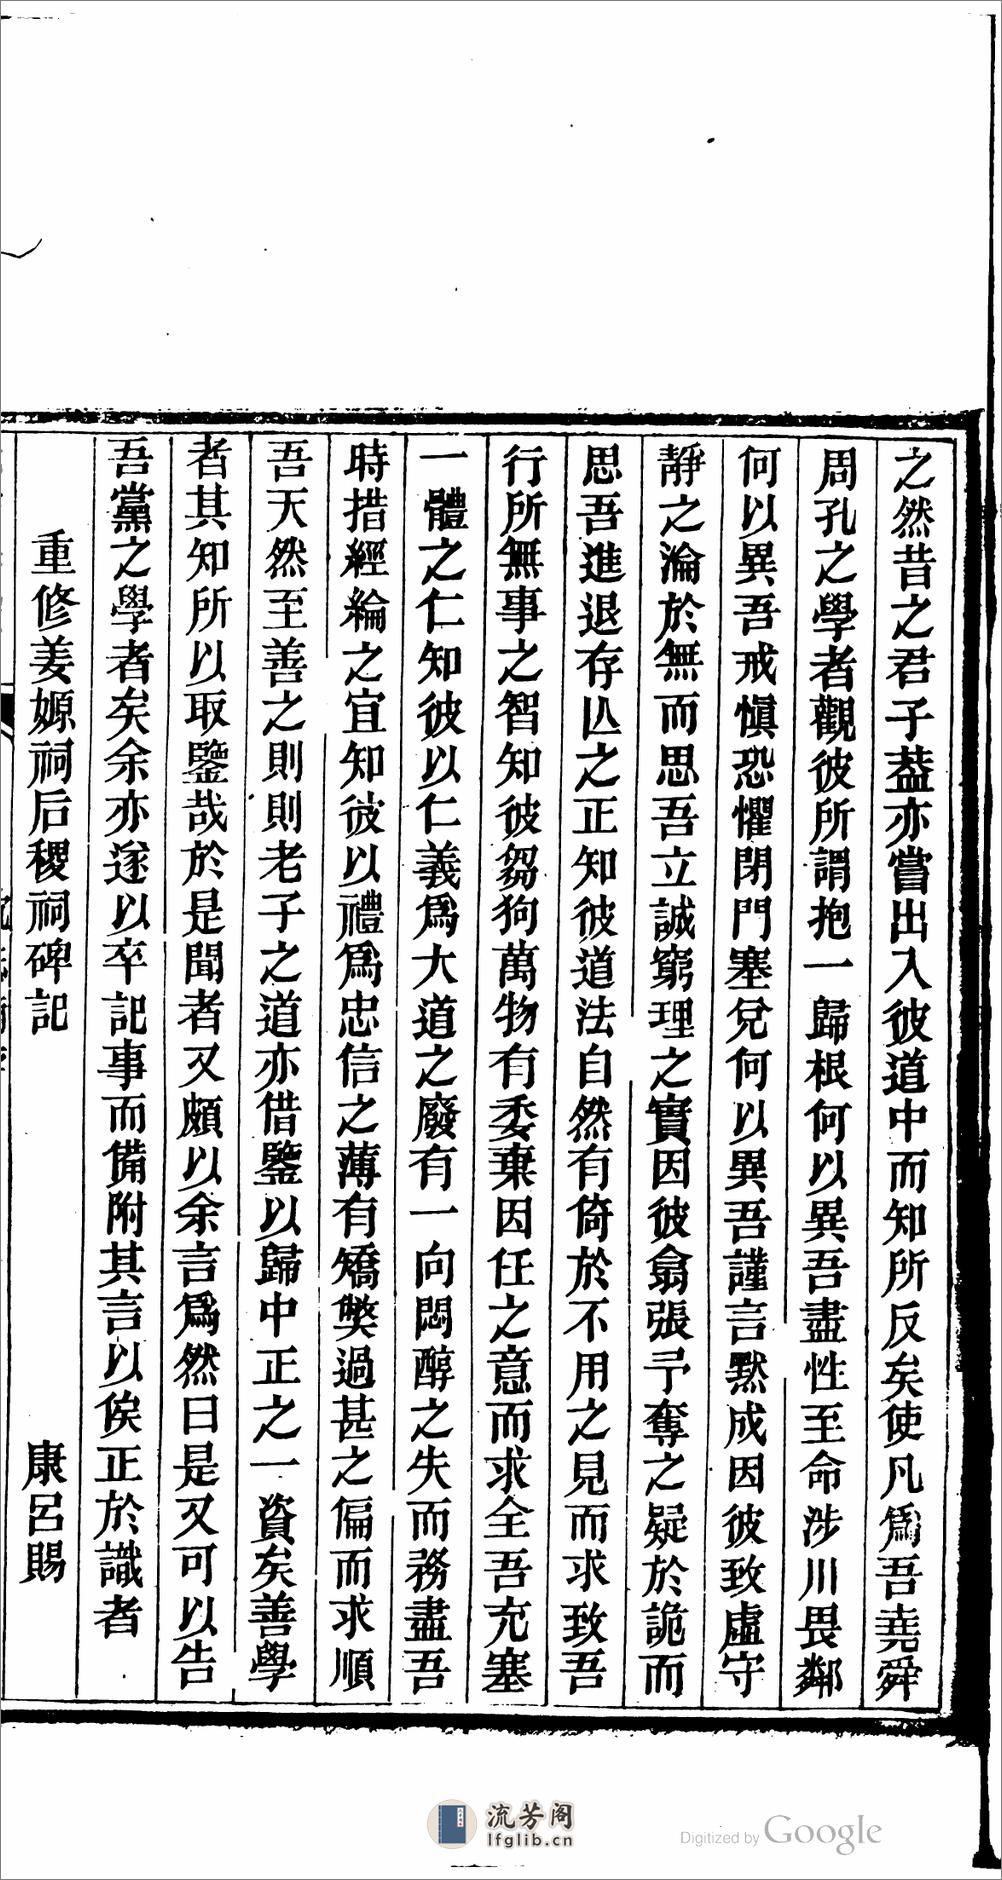 之然昔之君子葢亦嘗出入彼道中而知所反矣使凡爲吾堯舜
周孔之學者觀彼所謂抱一歸根何以異吾盡性至命涉川畏鄰
何以異吾戒愼恐懼閉門塞兌何以異吾謹言默成因彼致虛守
靜之淪於無而思吾立誠窮理之實因彼翕張予奪之疑於詭而
思吾進退存亾之正知彼道法自然有倚於不用之見而求致吾
行所無事之智知彼芻狗萬物有委棄因任之意而求全吾充塞
一體之仁知彼以仁義爲大道之廢有一向悶醇之失而務盡吾
時措經綸之宜知彼以禮爲忠信之薄有矯獘過甚之偏而求順
吾天然至善之則則老子之道亦借鑒以歸中正之一資矣善學
者其知所以取鑒哉於是聞者又頗以余言爲然曰是又可以告
吾黨之學者矣余亦遂以卒記事而備附其言以俟正於識者
重修姜嫄祠后稷祠碑記 康呂賜
流芳阁
lfglib.cn
Digitized by Google